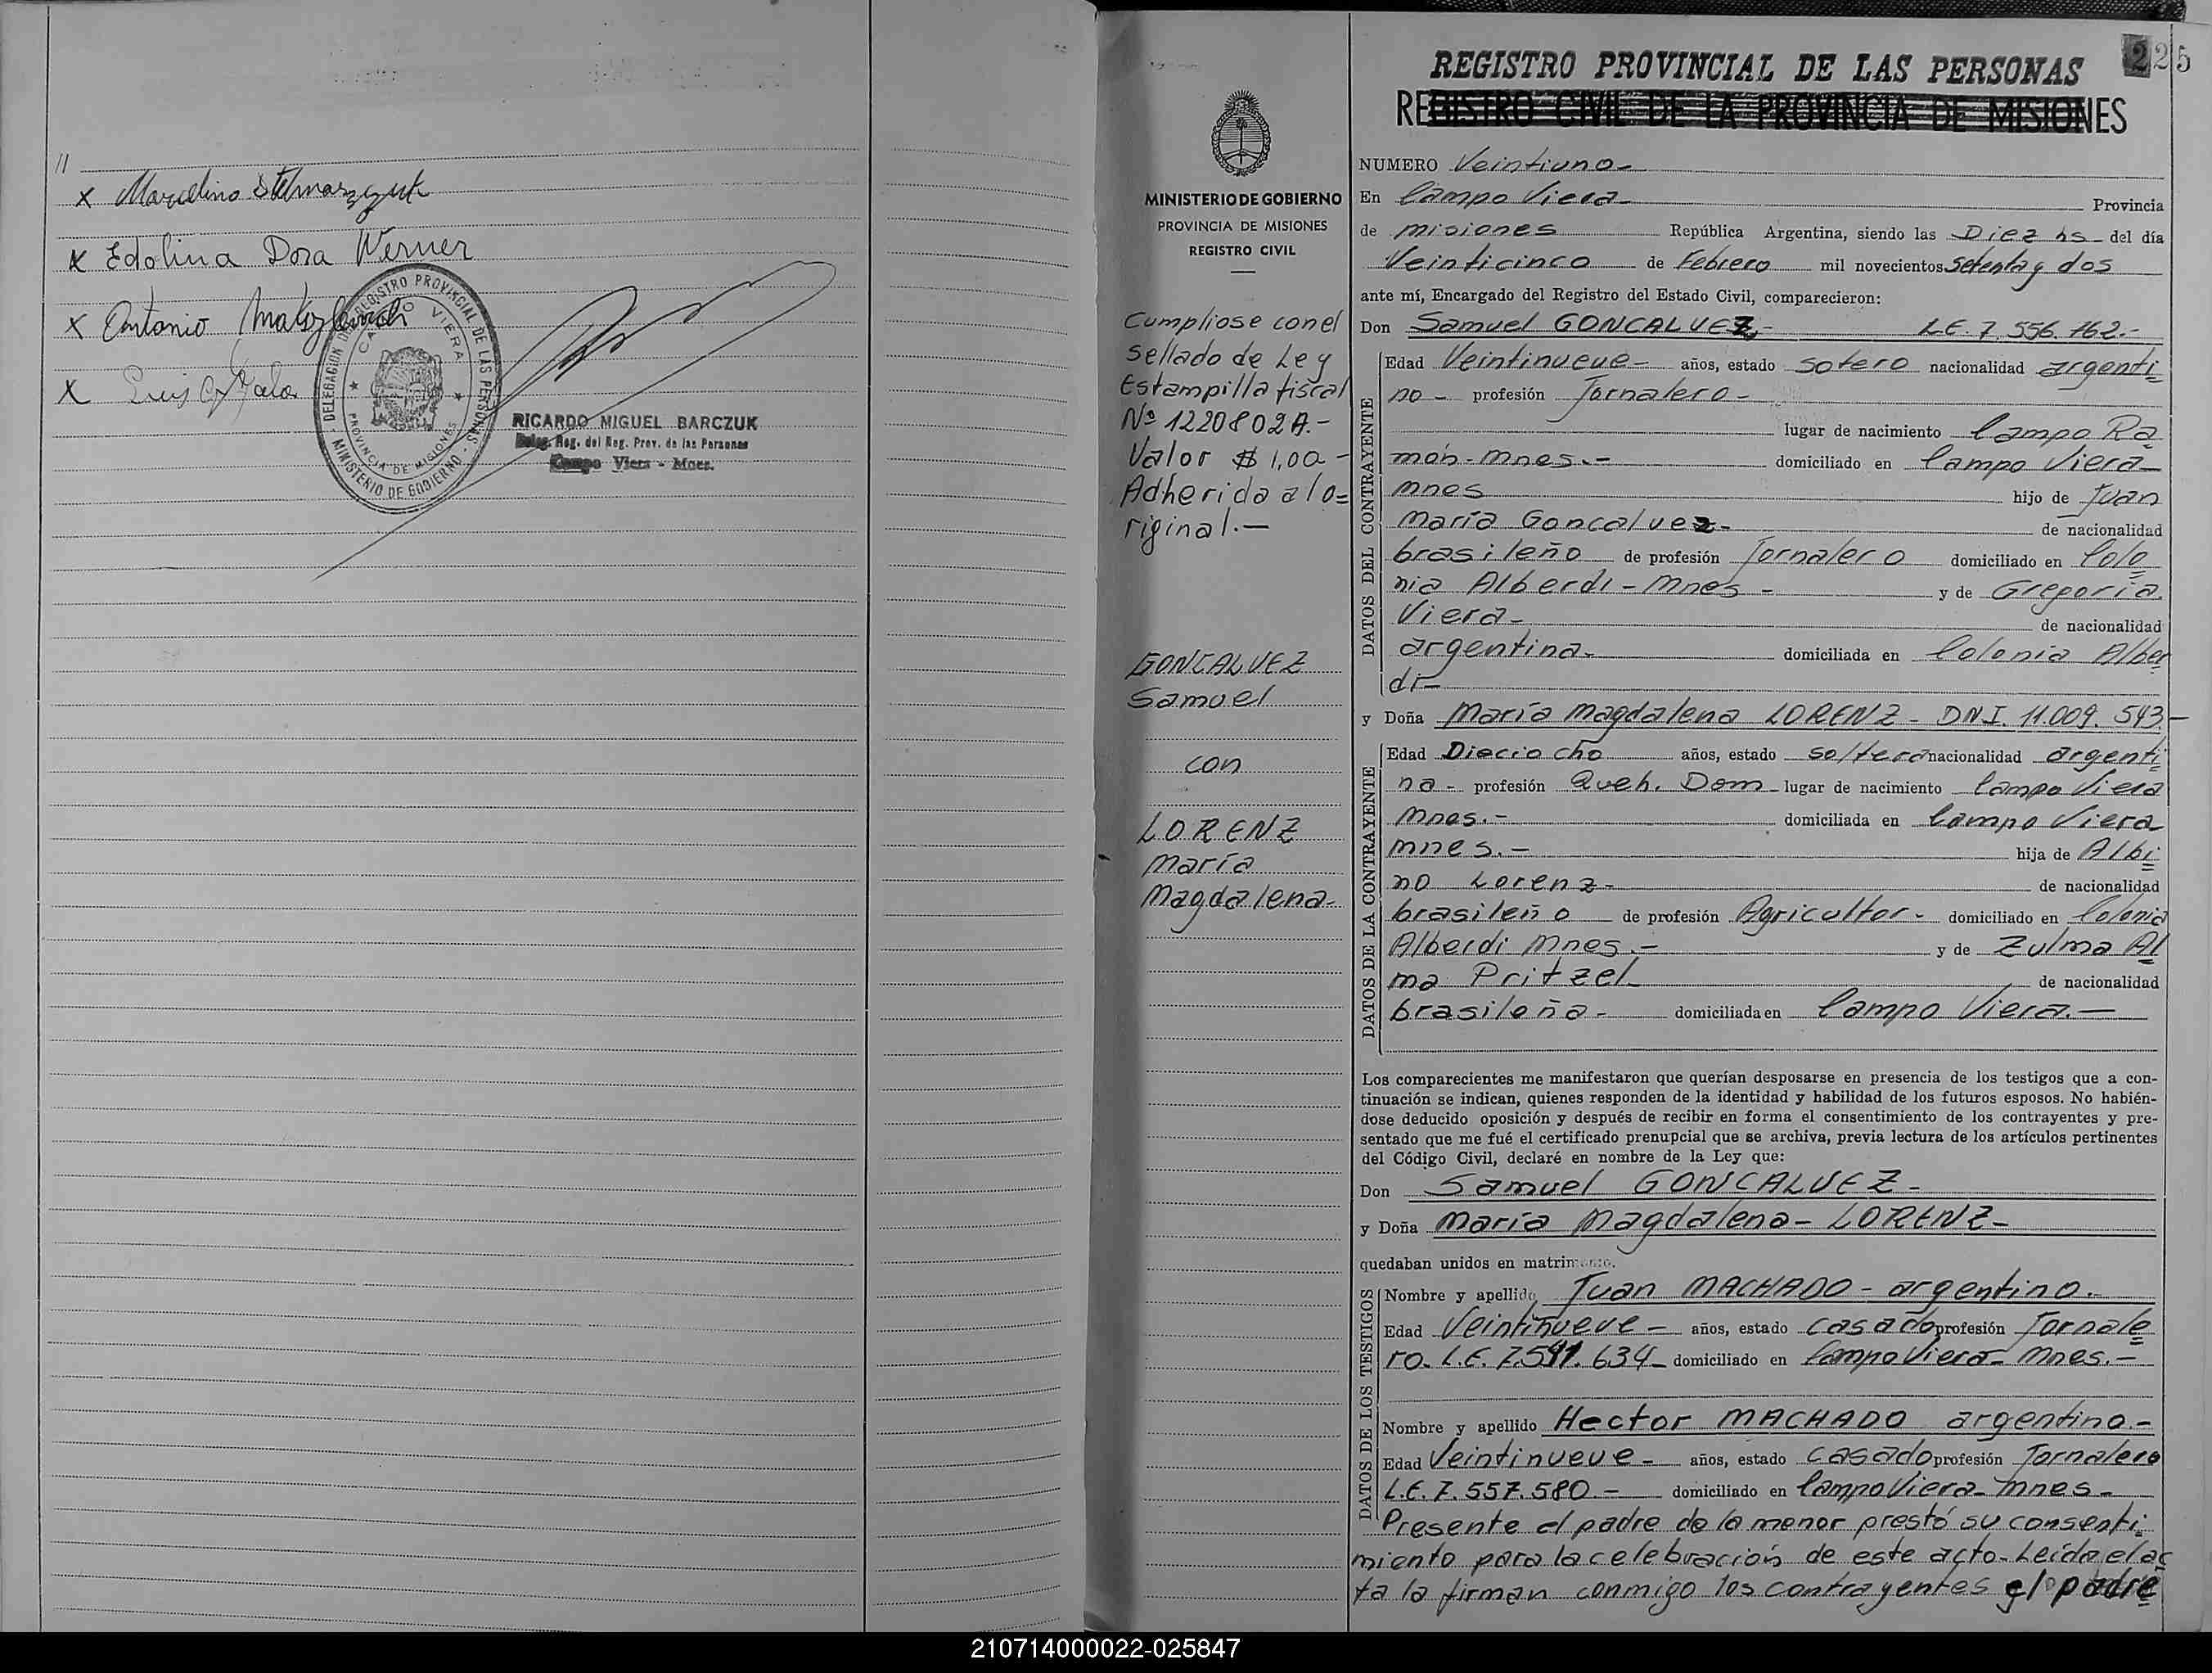 //
x Marcelino Stelmaszczuk
x Edolina Dora Werner
x Antonio
x Luis
DELEGACION DEL REGISTRO PROVINCIAL DE LAS PERSONAS
CAMPO VIERA
PROVINCIA DE MISIONES
MINISTERIO DE GOBIERNO
RICARDO MIGUEL BARCZUK
Deleg. Reg. del Reg. Prov. de las Personas
Campo Viera - Mnes.
225
REGISTRO PROVINCIAL DE LAS PERSONAS
REGISTRO CIVIL DE LA PROVINCIA DE MISIONES
MINISTERIO DE GOBIERNO
PROVINCIA DE MISIONES
REGISTRO CIVIL
Cumpliose con el
sellado de Ley
Estampilla fiscal
Nº 1220802A.-
Valor $ 1,00 -
Adherida al o=
riginal.-
GONCALVEZ
Samuel
con
LORENZ
María
Magdalena-
NUMERO Veintiuno-
En Campo Viera- Provincia
de misiones República Argentina, siendo las Diez hs- del día
Veinticinco de Febrero mil novecientos Setenta y dos
ante mí, Encargado del Registro del Estado Civil, comparecieron:
Don Samuel GONCALVEZ- L.E. 7.556.162.-
DATOS DEL CONTRAYENTE
Edad Veintinueve- años, estado sotero nacionalidad argenti=
no- profesión Jornalero-
lugar de nacimiento Campo Ra=
món-Mnes.- domiciliado en Campo Viera-
mnes hijo de Juan
María Goncalvez- de nacionalidad
brasileño de profesión Jornalero domiciliado en Colo=
nia Alberdi-Mnes- y de Gregoria
Viera- de nacionalidad
argentina- domiciliada en Colonia Alber=
di-
y Doña María Magdalena LORENZ- DNI. 11.009.543-
DATOS DE LA CONTRAYENTE
Edad Dieciocho años, estado soltera nacionalidad argenti=
na- profesión Queh. Dom- lugar de nacimiento Campo Viera
Mnes.- domiciliada en Campo Viera
mnes.- hija de Albi=
no Lorenz- de nacionalidad
brasileño de profesión Agricultor- domiciliado en Colonia
Alberdi Mnes.- y de Zulma Al=
ma Pritzel- de nacionalidad
brasileña- domiciliada en Campo Viera.-
Los comparecientes me manifestaron que querían desposarse en presencia de los testigos que a con-
tinuación se indican, quienes responden de la identidad y habilidad de los futuros esposos. No habién-
dose deducido oposición y después de recibir en forma el consentimiento de los contrayentes y pre-
sentado que me fué el certificado prenupcial que se archiva, previa lectura de los artículos pertinentes
del Código Civil, declaré en nombre de la Ley que:
Don Samuel GONCALVEZ-
y Doña María Magdalena- LORENZ-
quedaban unidos en matrimonio.
DATOS DE LOS TESTIGOS
Nombre y apellido Juan MACHADO - argentino.-
Edad Veintinueve- años, estado casado profesión Jornale=
ro. L.E. 7.541.634- domiciliado en Campo Viera- Mnes.-
Nombre y apellido Hector MACHADO argentino.-
Edad Veintinueve- años, estado casado profesión Jornalero
L.E. 7.557.580.- domiciliado en Campo Viera- Mnes-
Presente el padre de la menor prestó su consenti=
miento para la celebración de este acto- Leída el ac=
ta la firman conmigo los contrayentes el padre
210714000022-025847